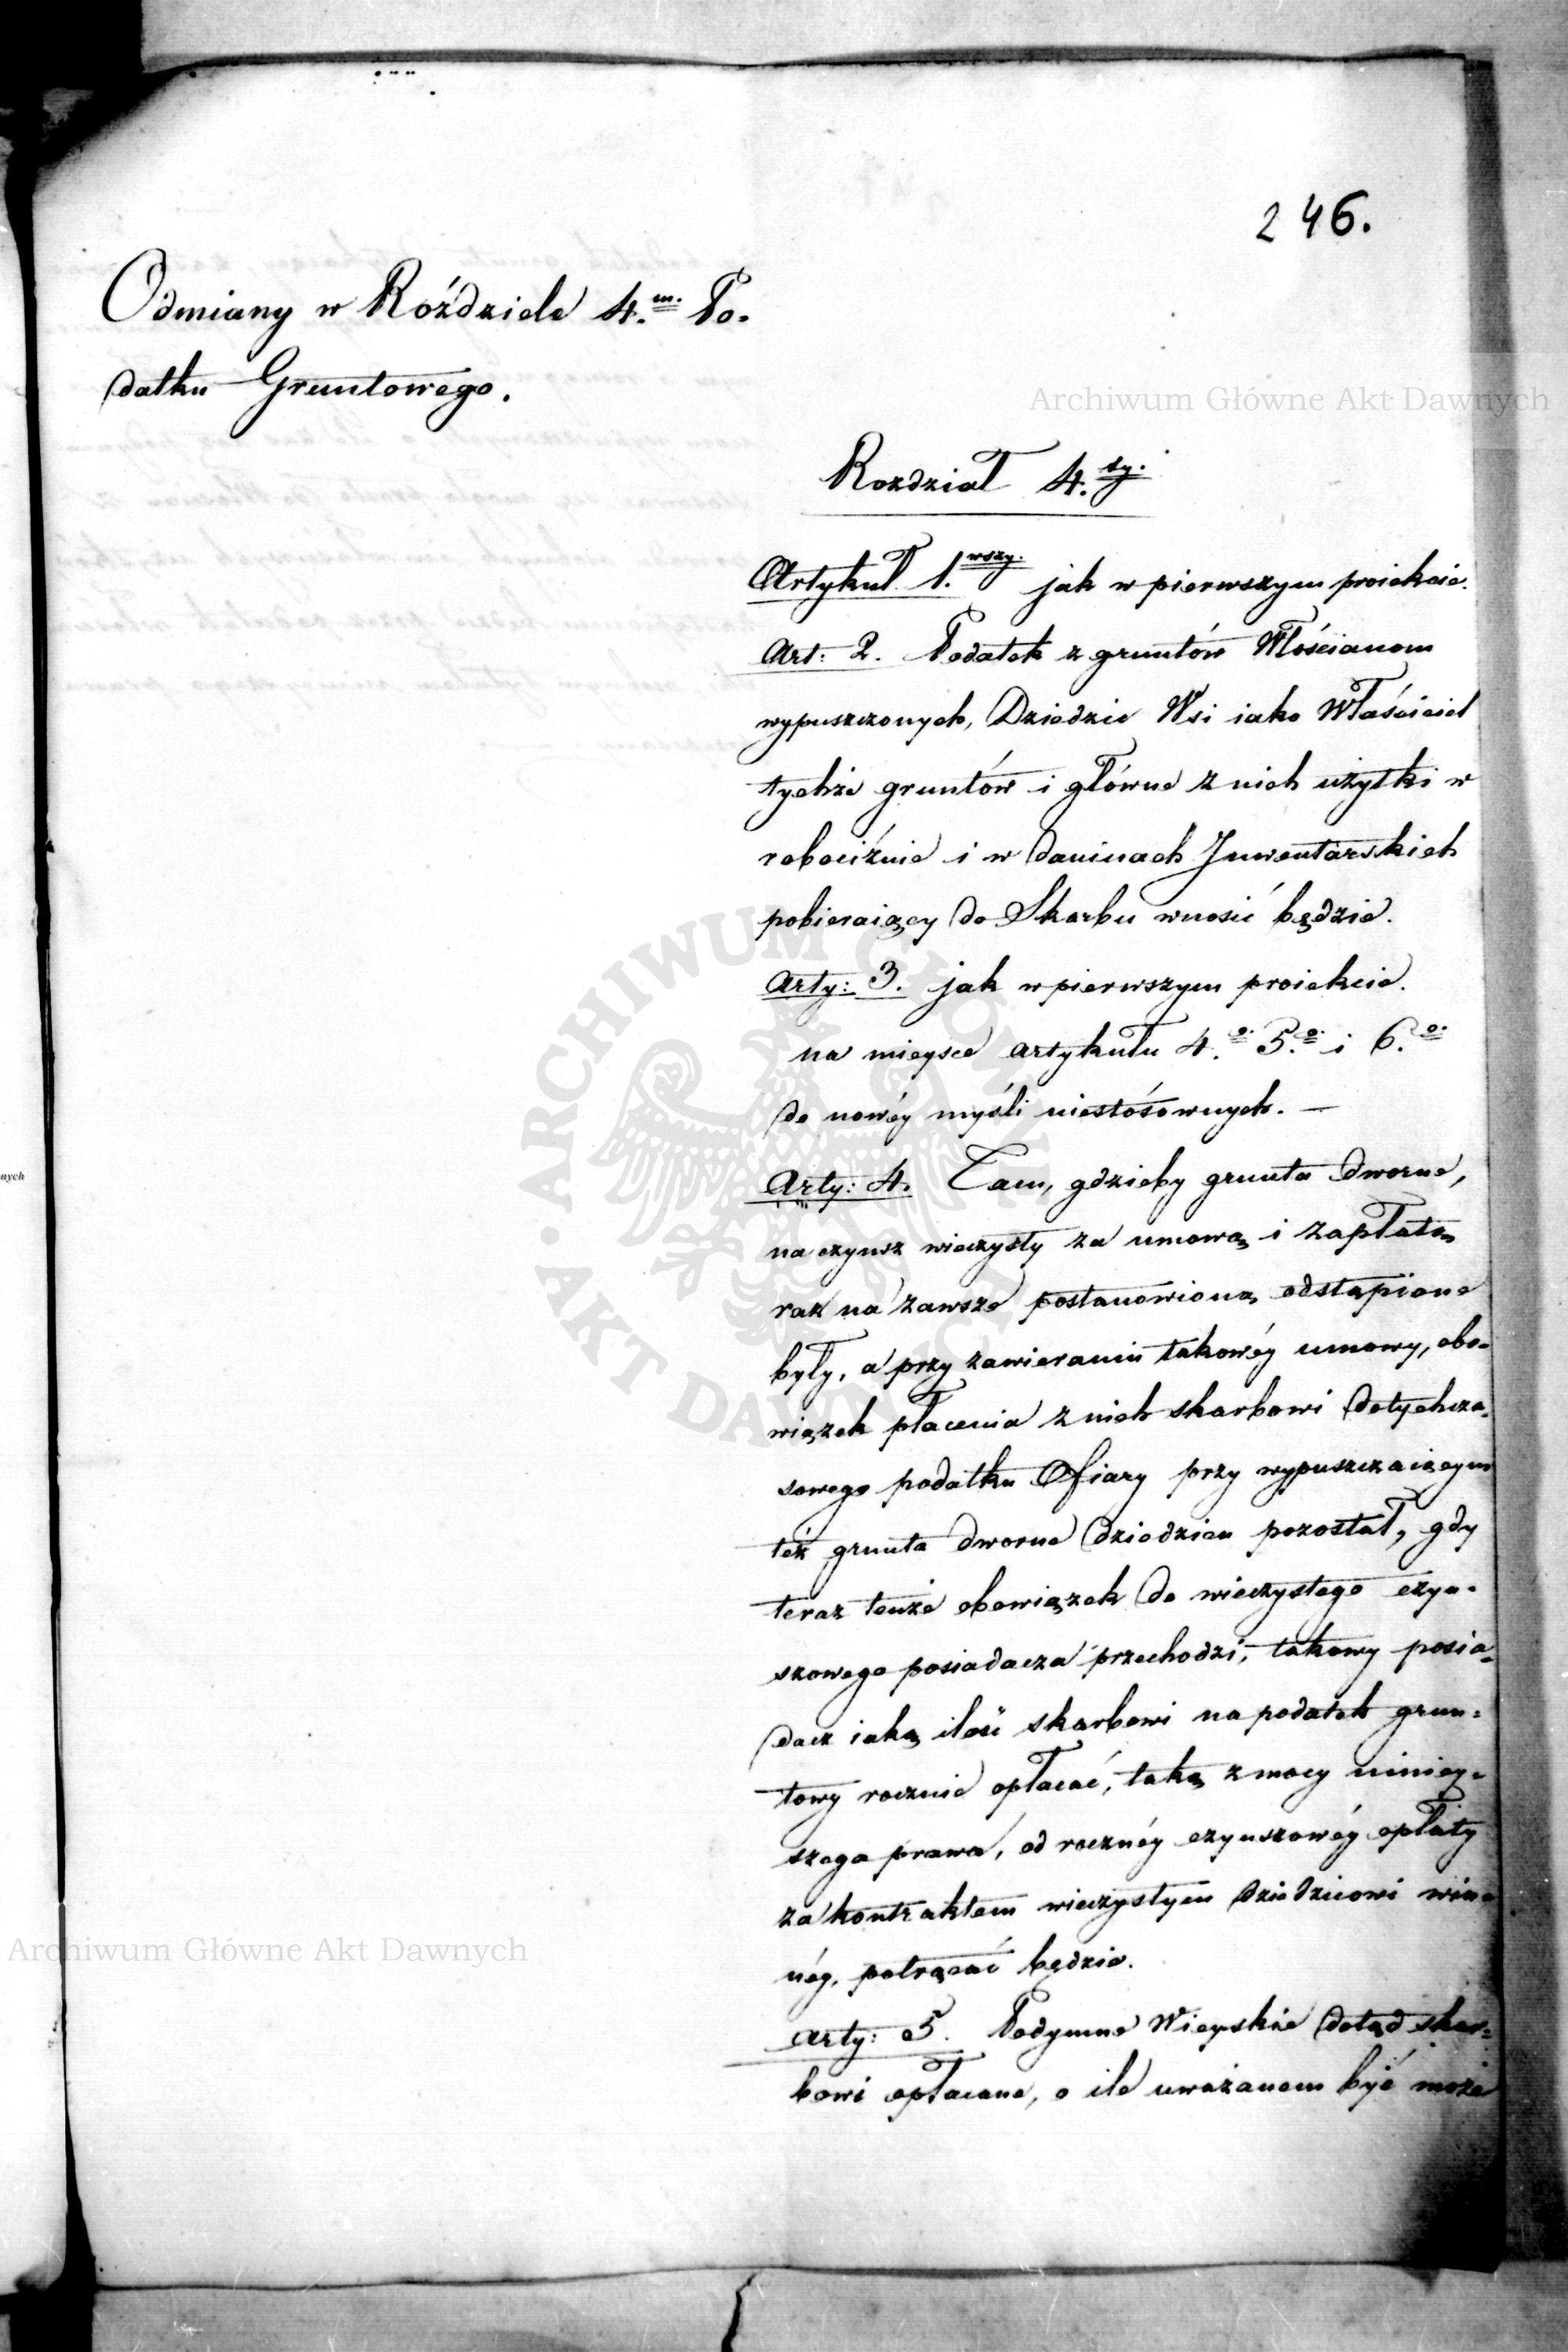 246.
Odmiany w Roździele 4.m Po-
datku Gruntowego.
Rozdział 4.ty.
Artykuł 1.wszy. jak w pierwszym proiekcie.
Art: 2. Podatek z gruntów Włościanom
wypuszczonych, Dziedzic Wsi iako Właściciel
tychże gruntów i główne z nich użytki w
robociźnie i w daninach Inwentarskich
pobieraiący do Skarbu wnosić będzie.
Arty: 3. jak w pierwszym proiekcie.
na mieysce artykułu 4.o 5.o i 6.o
do nowéy myśli niestósownych. —
Arty: 4. Tam, gdzieby grunta dworne,
na czynsz wieczysty za umową i zapłatą
raz na zawsze postanowioną odstąpione
były, a przy zawieraniu takowéy umowy, obo-
wiązek płacenia z nich skarbowi dotychcza-
sowego podatku Ofiary przy wypuszczaiącym
też grunta dworne dziedzicu pozostał, gdy
teraz tenże obowiązek do wieczystego czyn-
szowego posiadacza przechodzi, takowy posia-
dacz iaką ilość skarbowi na podatek grun-
towy rocznie opłacać, taką z mocy niniey-
szego prawa, od rocznéy czynszowéy opłaty
za kontraktem wieczystym dziedzicowi win-
néy, potrącać będzie.
Arty: 5. Podymne Wieyskie dotąd skar-
bowi opłacane, o ile uważanem być może
Archiwum Główne Akt Dawnych
Archiwum Główne Akt Dawnych
ARCHIWUM GŁÓWNE AKT DAWNYCH
nych